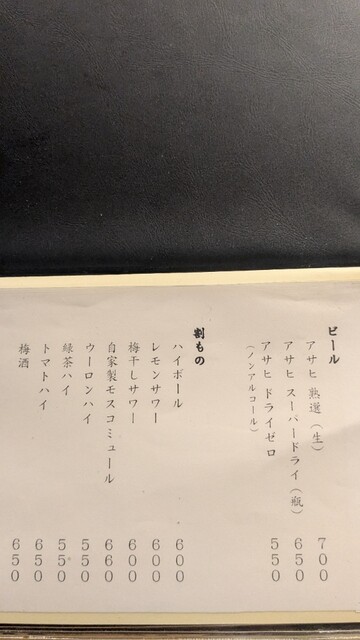 ビール
アサヒ 熟選（生） 700
アサヒ スーパードライ（瓶） 650
アサヒ ドライゼロ 550
（ノンアルコール）
割もの
ハイボール 600
レモンサワー 600
梅干しサワー 600
自家製モスコミュール 660
ウーロンハイ 550
緑茶ハイ 550
トマトハイ 650
梅酒 650